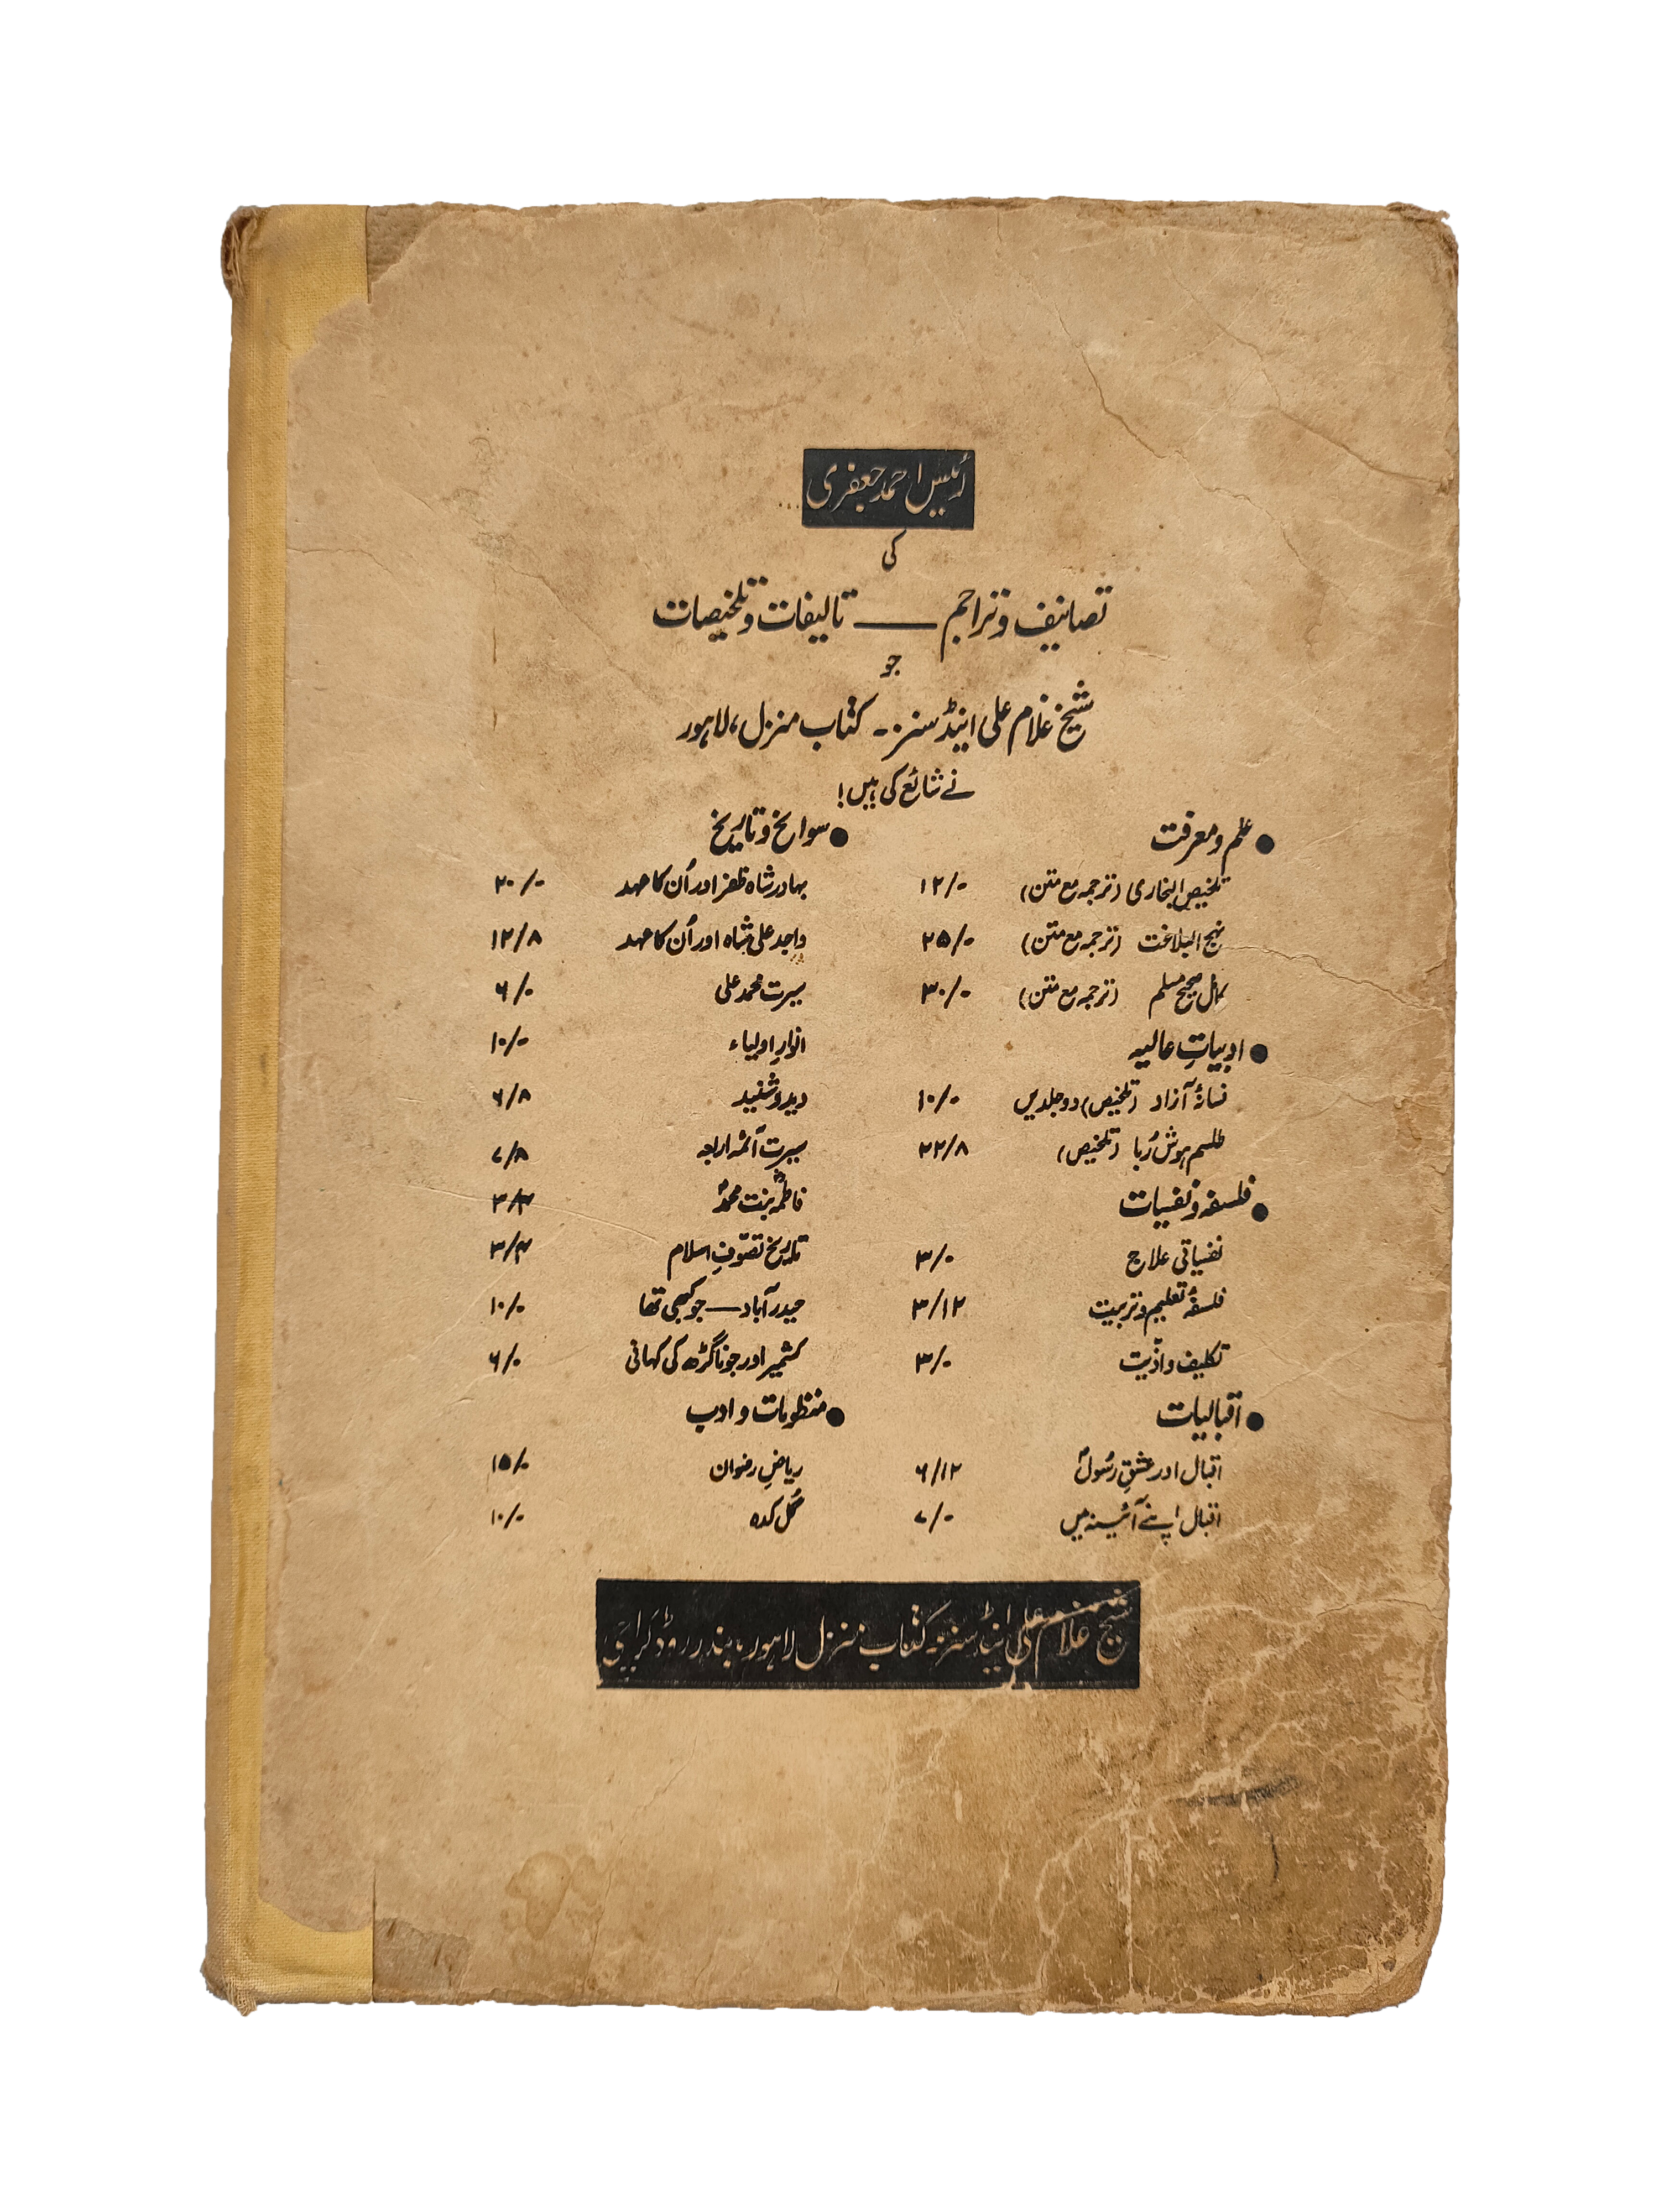 رئیس احمد جعفری
کی
تصانیف و تراجم —— تالیفات و تلخیصات
جو
شیخ غلام علی اینڈ سنز - کتاب منزل، لاہور
نے شائع کی ہیں!
● علم و معرفت
تلخیص البخاری (ترجمہ مع متن) ۱۲/۰
نہج البلاغت (ترجمہ مع متن) ۲۵/۰
کمال صحیح مسلم (ترجمہ مع متن) ۳۰/۰
● ادبیاتِ عالیہ
فسانۂ آزاد (تلخیص) دو جلدیں ۱۰/۰
طلسم ہوش رُبا (تلخیص) ۲۲/۸
● فلسفہ و نفسیات
نفسیاتی علاج ۳/۰
فلسفۂ تعلیم و تربیت ۳/۱۲
تکلیف و اذیّت ۳/۰
● اقبالیات
اقبال اور عشقِ رسُولؐ ۶/۱۲
اقبال اپنے آئینہ میں ۷/۰
● سوانح و تاریخ
بہادر شاہ ظفر اور اُن کا عہد ۲۰/۰
واجد علی شاہ اور اُن کا عہد ۱۲/۸
سیرت محمد علی ۶/۰
انوارِ اولیاء ۱۰/۰
دید و شنید ۶/۸
سیرت آئمہ اربعہ ۷/۸
فاطمہؓ بنت محمدؐ ۳/۴
تاریخ تصوّفِ اسلام ۳/۴
حیدر آباد — جو کبھی تھا ۱۰/۰
کشمیر اور جوناگڑھ کی کہانی ۶/۰
● منظومات و ادب
ریاضِ رضوان ۱۵/۰
گُل کدہ ۱۰/۰
شیخ غلام علی اینڈ سنز - کتاب منزل لاہور، بندر روڈ کراچی